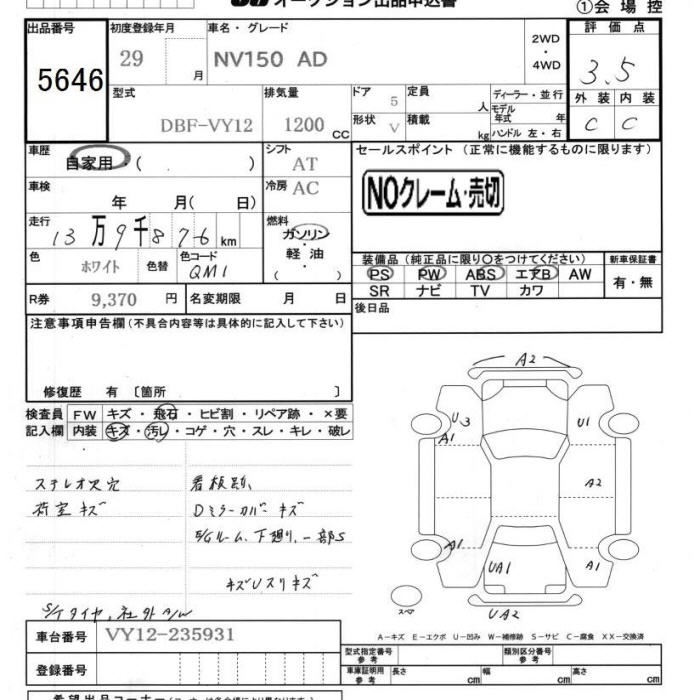 オークション出品申込書
①会場控
出品番号 初度登録年月 車名・グレード 評価点
5646 29 月 NV150 AD 2WD・4WD 3.5
型式 DBF-VY12 排気量 1200 CC ドア 5 定員 人 ディーラー・並行
外装 内装
モデル年式 年
形状 V 積載 kg ハンドル 左・右 C C
車歴 自家用 ( ) シフト AT セールスポイント (正常に機能するものに限ります)
車検 年 月( 日) 冷房 AC NOクレーム・売切
走行 13万9千876 km 燃料 ガソリン・軽油 ( )
色 ホワイト 色替 色コード QM1
装備品 (純正品に限り○をつけてください) 新車保証書
PS PW ABS エアB AW 有・無
SR ナビ TV カワ
R券 9,370 円 名変期限 月 日 後日品
注意事項申告欄(不具合内容等は具体的に記入して下さい)
修復歴 有 〔箇所 〕
検査員 FW キズ・飛石・ヒビ割・リペア跡・×要
記入欄 内装 キズ・汚レ・コゲ・穴・スレ・キレ・破レ
ステレオ欠穴 看板跡
荷室キズ Dミラーカバーキズ
E/Gルーム、下廻り、一部S
キズUスリキズ
S/Tタイヤ、社外A/W
A2
U3 U1
A1
A2
A1 A1
UA1
スペア
UA2
A-キズ E-エクボ U-凹み W-補修跡 S-サビ C-腐食 XX-交換済
車台番号 VY12-235931
型式指定番号 参考 類別区分番号 参考
登録番号 車庫証明用 参考 長さ cm 幅 cm 高さ cm
希望出品コーナー